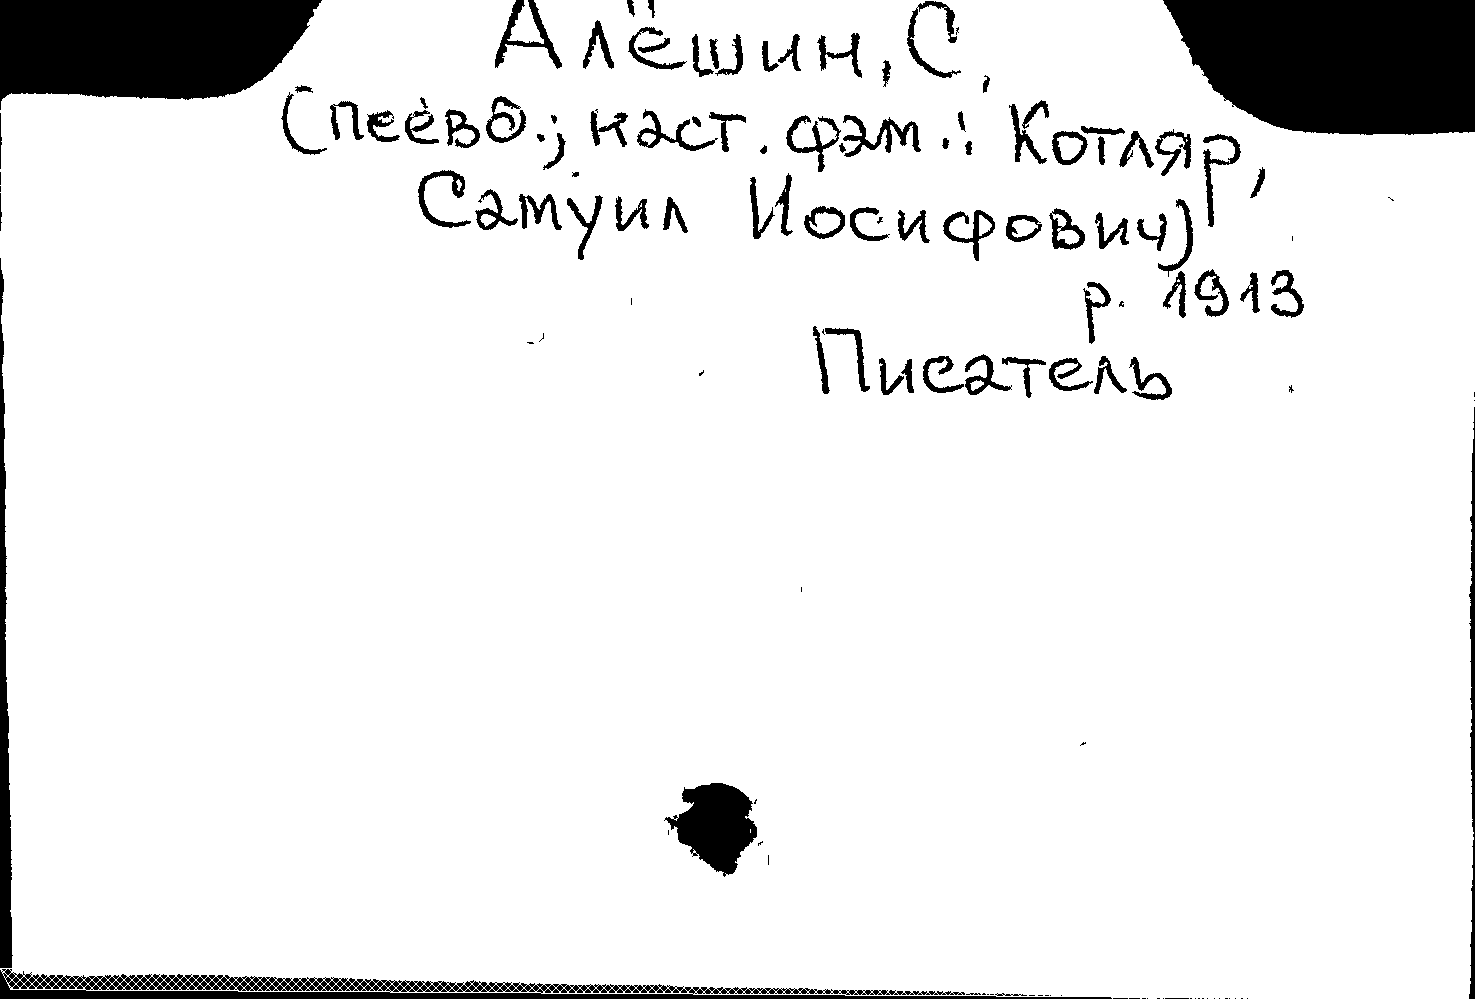 Алёшин, С.
(псевд.; наст. фам.: Котляр,
Самуил Иосифович)
р. 1913
Писатель